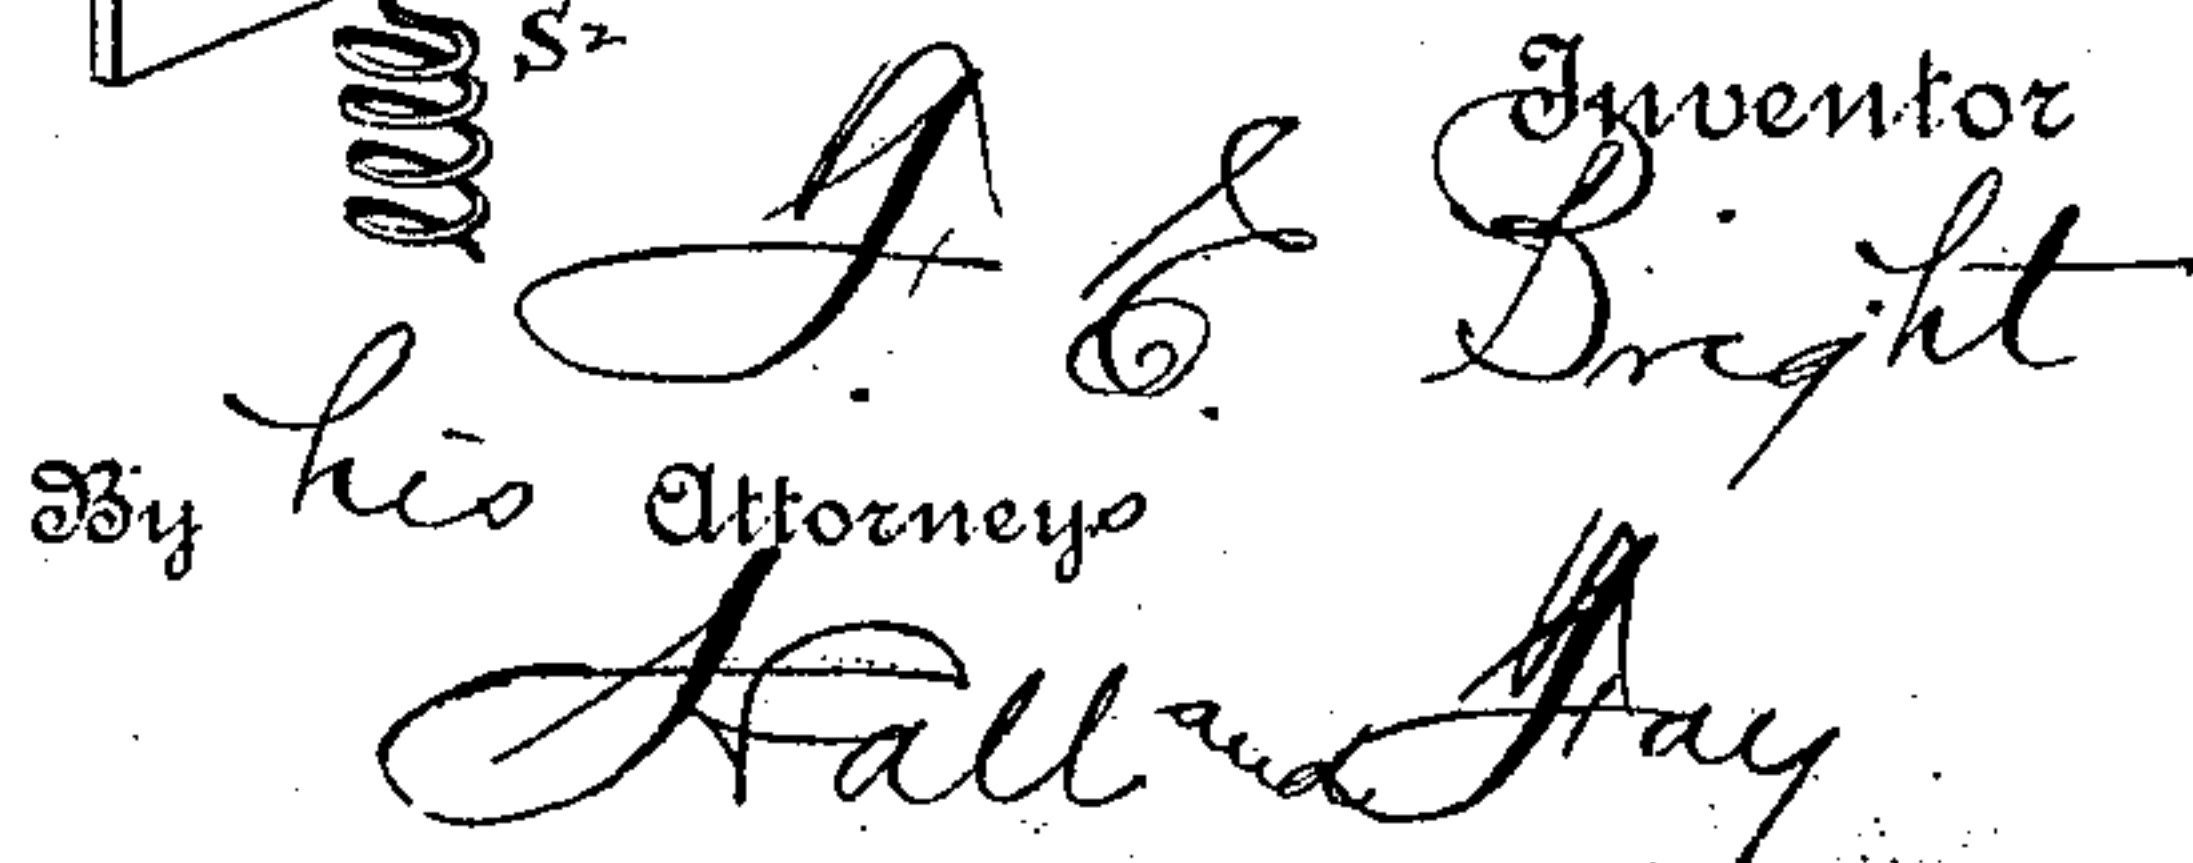 S²
Inventor
F. E. Bright
By his Attorneys
Hall and Fay